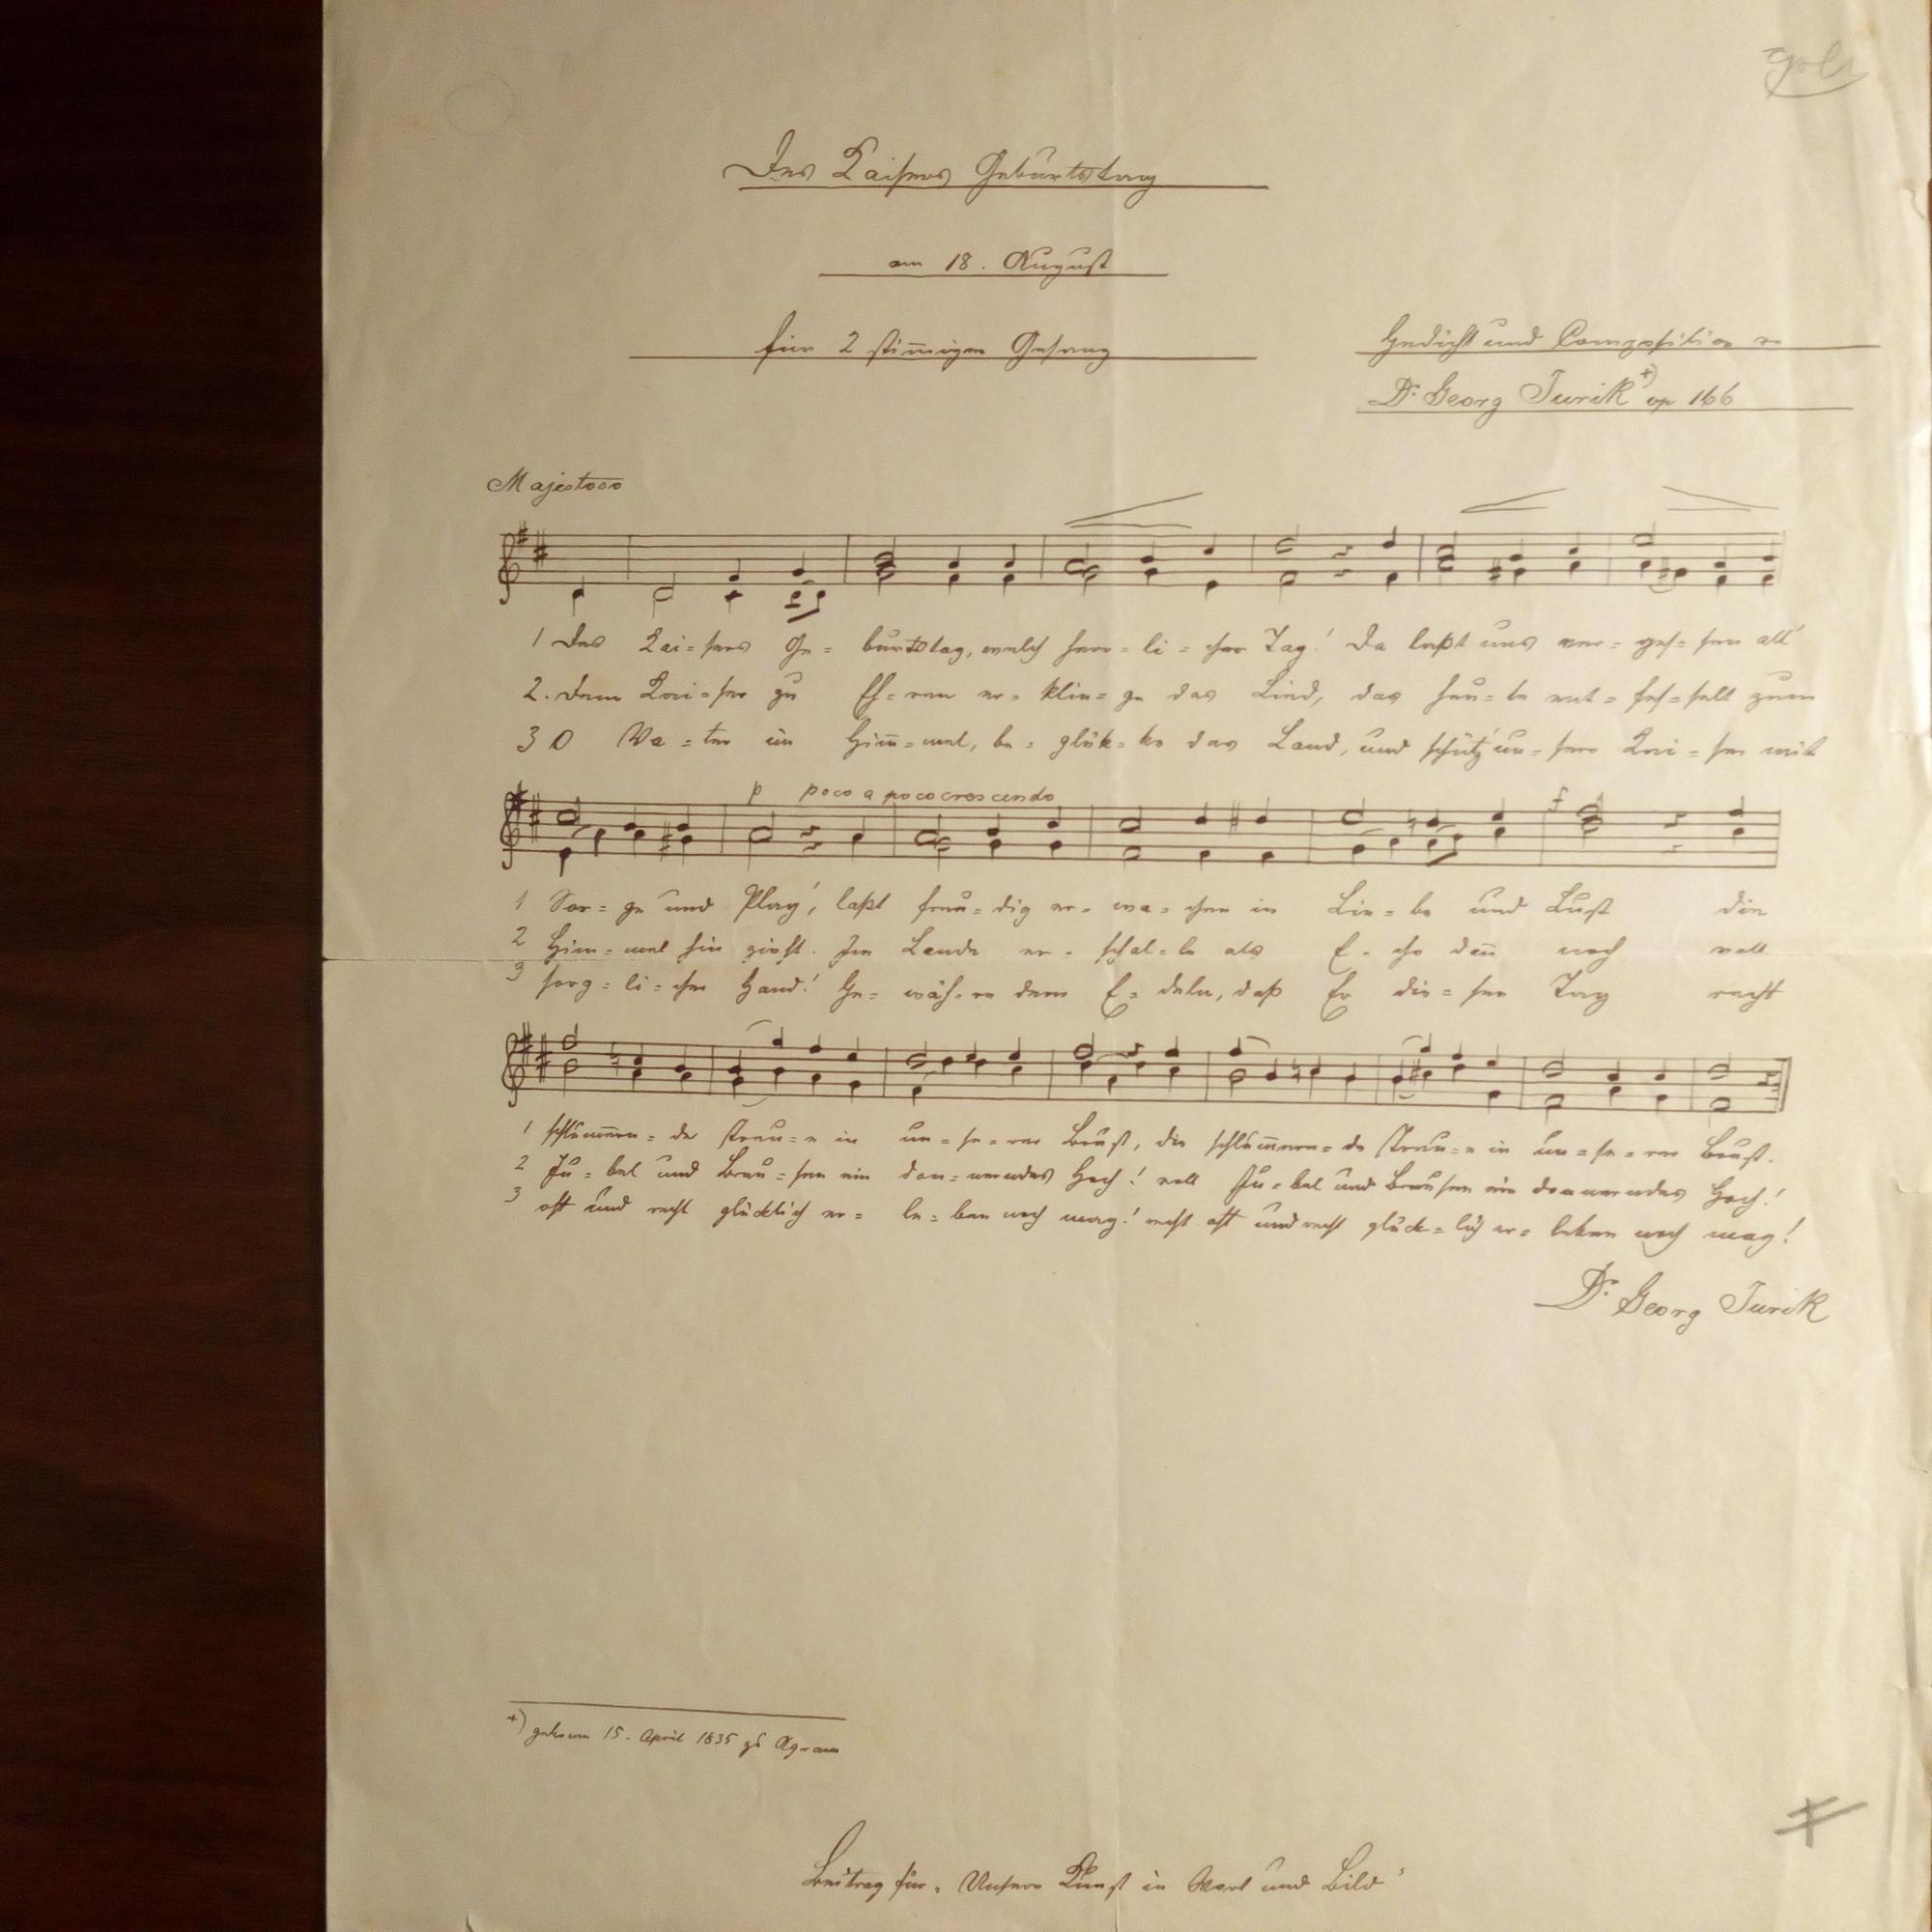 Des Kaisers Geburtstag
am 18. August
für 2 stim̅igen Gesang
Gedicht und Composition v
Dr. Georg Jurik +) op 166
Majestoso
1 Des Kai=sers Ge= burtstag, welch herr=li=cher Tag! Da laßt uns ver=ges=sen all'
2. Dem Kai=ser zu Eh=ren er=klin=ge das Lied, das heu=te ent=fes=selt zum
3 O Va=ter im Him̅=mel, be=glük=ke das Land, und schütz' un=sern Kai=ser mit
p poco a poco crescendo f
1 Sor=ge und Plag', laßt freu=dig er=wa=chen in Lie=be und Lust die
2 Him=mel hin zieht. Im Lande er=schal=le als E=cho den̅ noch voll
3 sorg=li=cher Hand! Ge=wäh=re dem E=deln, daß Er die=sen Tag recht
1 schlum̅ern=de Treu=e in un=se=rer Brust, die schlum̅ern=de Treu=e in un=se=rer Brust.
2 Ju=bel und Brau=sen ein don=nerndes Hoch! voll Ju=bel und Brausen ein donnerndes Hoch!
3 oft und recht glücklich er=le=ben noch mag! recht oft und recht glück=lich er=leben noch mag!
Dr. Georg Jurik
+) geboren 15. April 1835 zu Agram
Beitrag für „Unsere Kunst in Wort und Bild"